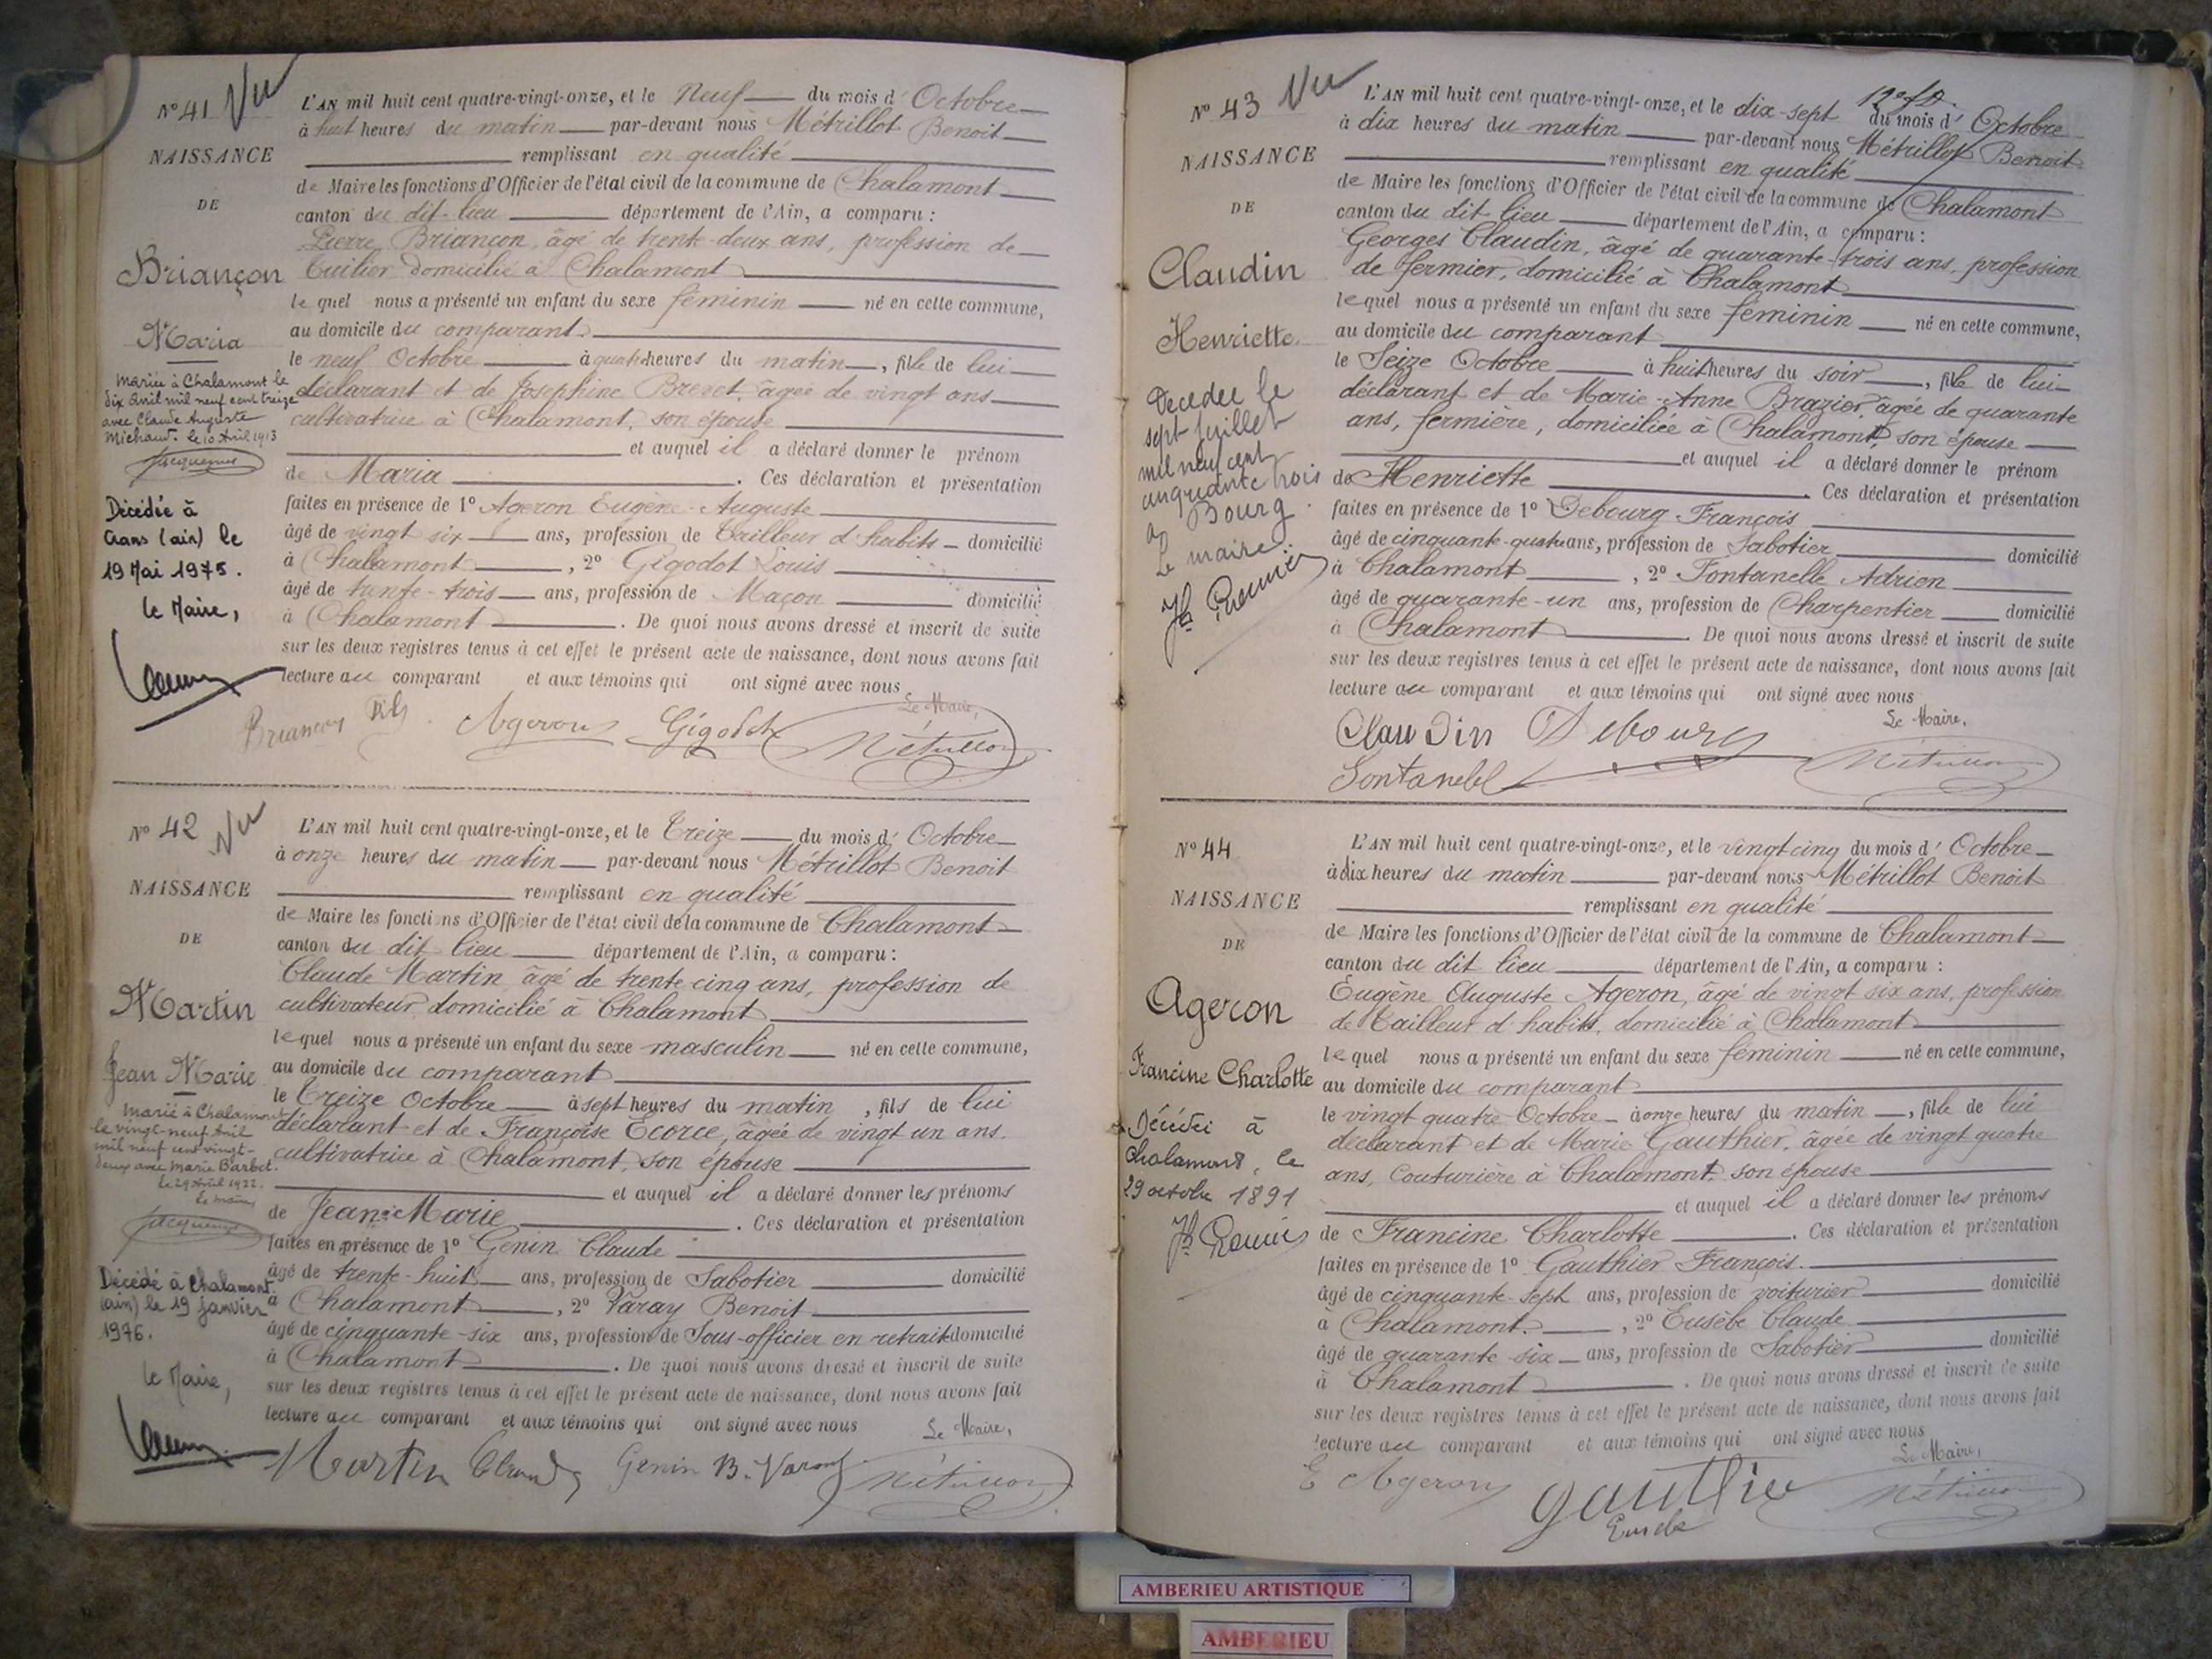 N° 41 Vu
NAISSANCE
DE
Briançon
Maria
Mariée à Chalamont le
dix Avril mil neuf cent treize
avec Claude Auguste
Michaud. le 10 Avril 1913
Jacquemet
Décédée à
Crans (ain) le
19 Mai 1975.
le Maire,
L'AN mil huit cent quatre-vingt-onze, et le Neuf du mois d'Octobre
à huit heures du matin par-devant nous Métrillot Benoit
remplissant en qualité
de Maire les fonctions d'Officier de l'état civil de la commune de Chalamont
canton du dit-lieu département de l'Ain, a comparu :
Pierre Briançon, âgé de trente-deux ans, profession de
Tuilier domicilié à Chalamont
lequel nous a présenté un enfant du sexe féminin né en cette commune,
au domicile du comparant.
le neuf Octobre à quatre heures du matin, fille de lui
déclarant et de Josephine Brevet, âgée de vingt ans
cultivatrice à Chalamont, son épouse
et auquel il a déclaré donner le prénom
de Maria. Ces déclaration et présentation
faites en présence de 1° Ageron Eugène-Auguste
âgé de vingt six ans, profession de Tailleur d'habits domicilié
à Chalamont, 2° Gigodot Louis
âgé de trente-trois ans, profession de Maçon domicilié
à Chalamont. De quoi nous avons dressé et inscrit de suite
sur les deux registres tenus à cet effet le présent acte de naissance, dont nous avons fait
lecture au comparant et aux témoins qui ont signé avec nous
Le Maire,
Briançon fils. Ageron Gigodot Métrillot
N° 42 Vu
NAISSANCE
DE
Martin
Jean Marie
Marié à Chalamont
le vingt-neuf Avril
mil neuf cent vingt-
deux avec Marie Barbet.
Le 29 Avril 1922.
Le maire
Jacquemet
Décédé à Chalamont
(ain) le 19 Janvier
1976.
le Maire,
L'AN mil huit cent quatre-vingt-onze, et le Treize du mois d'Octobre
à onze heures du matin par-devant nous Métrillot Benoit
remplissant en qualité
de Maire les fonctions d'Officier de l'état civil de la commune de Chalamont
canton du dit lieu département de l'Ain, a comparu :
Claude Martin âgé de trente cinq ans, profession de
cultivateur domicilié à Chalamont
lequel nous a présenté un enfant du sexe masculin né en cette commune,
au domicile du comparant
le Treize Octobre à sept heures du matin, fils de lui
déclarant et de Françoise Ecorce, âgée de vingt un ans.
cultivatrice à Chalamont, son épouse
et auquel il a déclaré donner les prénoms
de Jean-Marie. Ces déclaration et présentation
faites en présence de 1° Genin Claude
âgé de trente-huit ans, profession de Sabotier domicilié
à Chalamont, 2° Varay Benoit
âgé de cinquante-six ans, profession de Sous-officier en retraite domicilié
à Chalamont. De quoi nous avons dressé et inscrit de suite
sur les deux registres tenus à cet effet le présent acte de naissance, dont nous avons fait
lecture au comparant et aux témoins qui ont signé avec nous
Le Maire,
Martin Claude Genin B. Varay Métrillot
N° 43 Vu
NAISSANCE
DE
Claudin
Henriette.
Décédée le
sept juillet
mil neuf cent
cinquante trois
à Bourg.
Le maire.
L'AN mil huit cent quatre-vingt-onze, et le dix-sept du mois d'Octobre
à dix heures du matin par-devant nous Métrillot Benoit
remplissant en qualité
de Maire les fonctions d'Officier de l'état civil de la commune de Chalamont
canton du dit lieu département de l'Ain, a comparu :
Georges Claudin, âgé de quarante-trois ans, profession
de fermier, domicilié à Chalamont
lequel nous a présenté un enfant du sexe féminin né en cette commune,
au domicile du comparant
le Seize Octobre à huit heures du soir, fille de lui
déclarant et de Marie-Anne Brazier, âgée de quarante
ans, fermière, domiciliée à Chalamont, son épouse
et auquel il a déclaré donner le prénom
de Henriette. Ces déclaration et présentation
faites en présence de 1° Debourg François
âgé de cinquante-quatre ans, profession de Sabotier domicilié
à Chalamont, 2° Fontanelle Adrien
âgé de quarante-un ans, profession de Charpentier domicilié
à Chalamont. De quoi nous avons dressé et inscrit de suite
sur les deux registres tenus à cet effet le présent acte de naissance, dont nous avons fait
lecture au comparant et aux témoins qui ont signé avec nous
Le Maire.
Claudin Debourg
Fontanelle Métrillot
N° 44
NAISSANCE
DE
Ageron
Francine Charlotte
Décédée à
Chalamont, le
29 octobre 1891
L'AN mil huit cent quatre-vingt-onze, et le vingt cinq du mois d'Octobre
à dix heures du matin par-devant nous Métrillot Benoit
remplissant en qualité
de Maire les fonctions d'Officier de l'état civil de la commune de Chalamont
canton du dit lieu département de l'Ain, a comparu :
Eugène Auguste Ageron, âgé de vingt six ans, profession
de Tailleur d'habits, domicilié à Chalamont
lequel nous a présenté un enfant du sexe féminin né en cette commune,
au domicile du comparant
le vingt quatre Octobre à onze heures du matin, fille de lui
déclarant et de Marie Gauthier, âgée de vingt quatre
ans, Couturière à Chalamont, son épouse
et auquel il a déclaré donner les prénoms
de Francine Charlotte. Ces déclaration et présentation
faites en présence de 1° Gauthier François.
âgé de cinquante-sept ans, profession de voiturier domicilié
à Chalamont., 2° Eusèbe Claude
âgé de quarante-six ans, profession de Sabotier domicilié
à Chalamont. De quoi nous avons dressé et inscrit de suite
sur les deux registres tenus à cet effet le présent acte de naissance, dont nous avons fait
lecture au comparant et aux témoins qui ont signé avec nous
Le Maire,
E Ageron Gauthier Métrillot
Eusèbe
AMBERIEU ARTISTIQUE
AMBERIEU